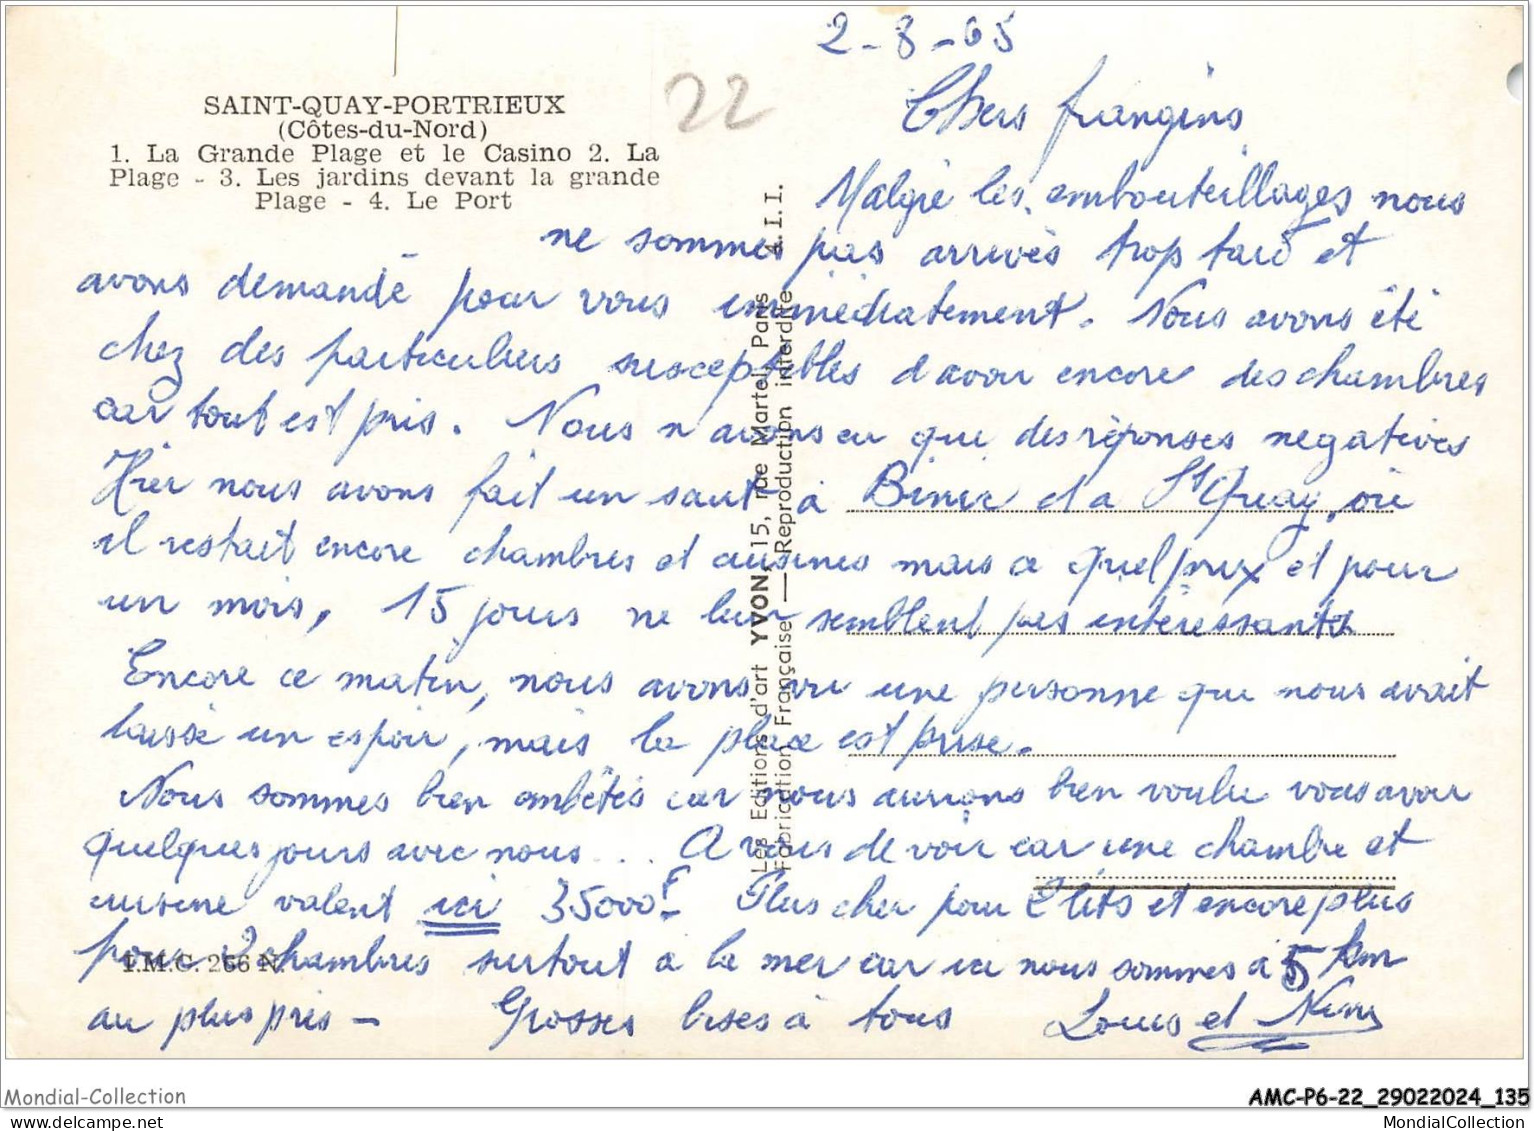 2-8-65
SAINT-QUAY-PORTRIEUX
(Côtes-du-Nord)
1. La Grande Plage et le Casino 2. La
Plage - 3. Les jardins devant la grande
Plage - 4. Le Port
22
Chers frangins
Malgré les embouteillages nous
ne sommes pas arrivés trop tard et
avons demandé pour vous immédiatement. Nous avons été
chez des particuliers susceptibles d'avoir encore des chambres
car tout est pris. Nous n'avons eu que des réponses négatives
Hier nous avons fait un saut à Binic et a St Quay, où
il restait encore chambres et cuisines mais a quel prix et pour
un mois, 15 jours ne leur semblent pas intéressants
Encore ce matin, nous avons vu une personne qui nous avait
laissé un espoir, mais la place est prise.
Nous sommes bien embêtés car nous aurions bien voulu vous avoir
quelques jours avec nous... A vous de voir car une chambre et
cuisine valent ici 35000F. Plus cher pour 2 lits et encore plus
pour 2 chambres surtout a la mer car ici nous sommes à 5 km
au plus près - Grosses bises à tous Louis et
Les Editions d'art YVON, 15, rue Martel, Paris A.I.I.
Fabrication Française — Reproduction interdite
I.M.C. 266 N
Mondial-Collection
AMC-P6-22_29022024_135
www.mondial-collection.com
MondialCollection.com